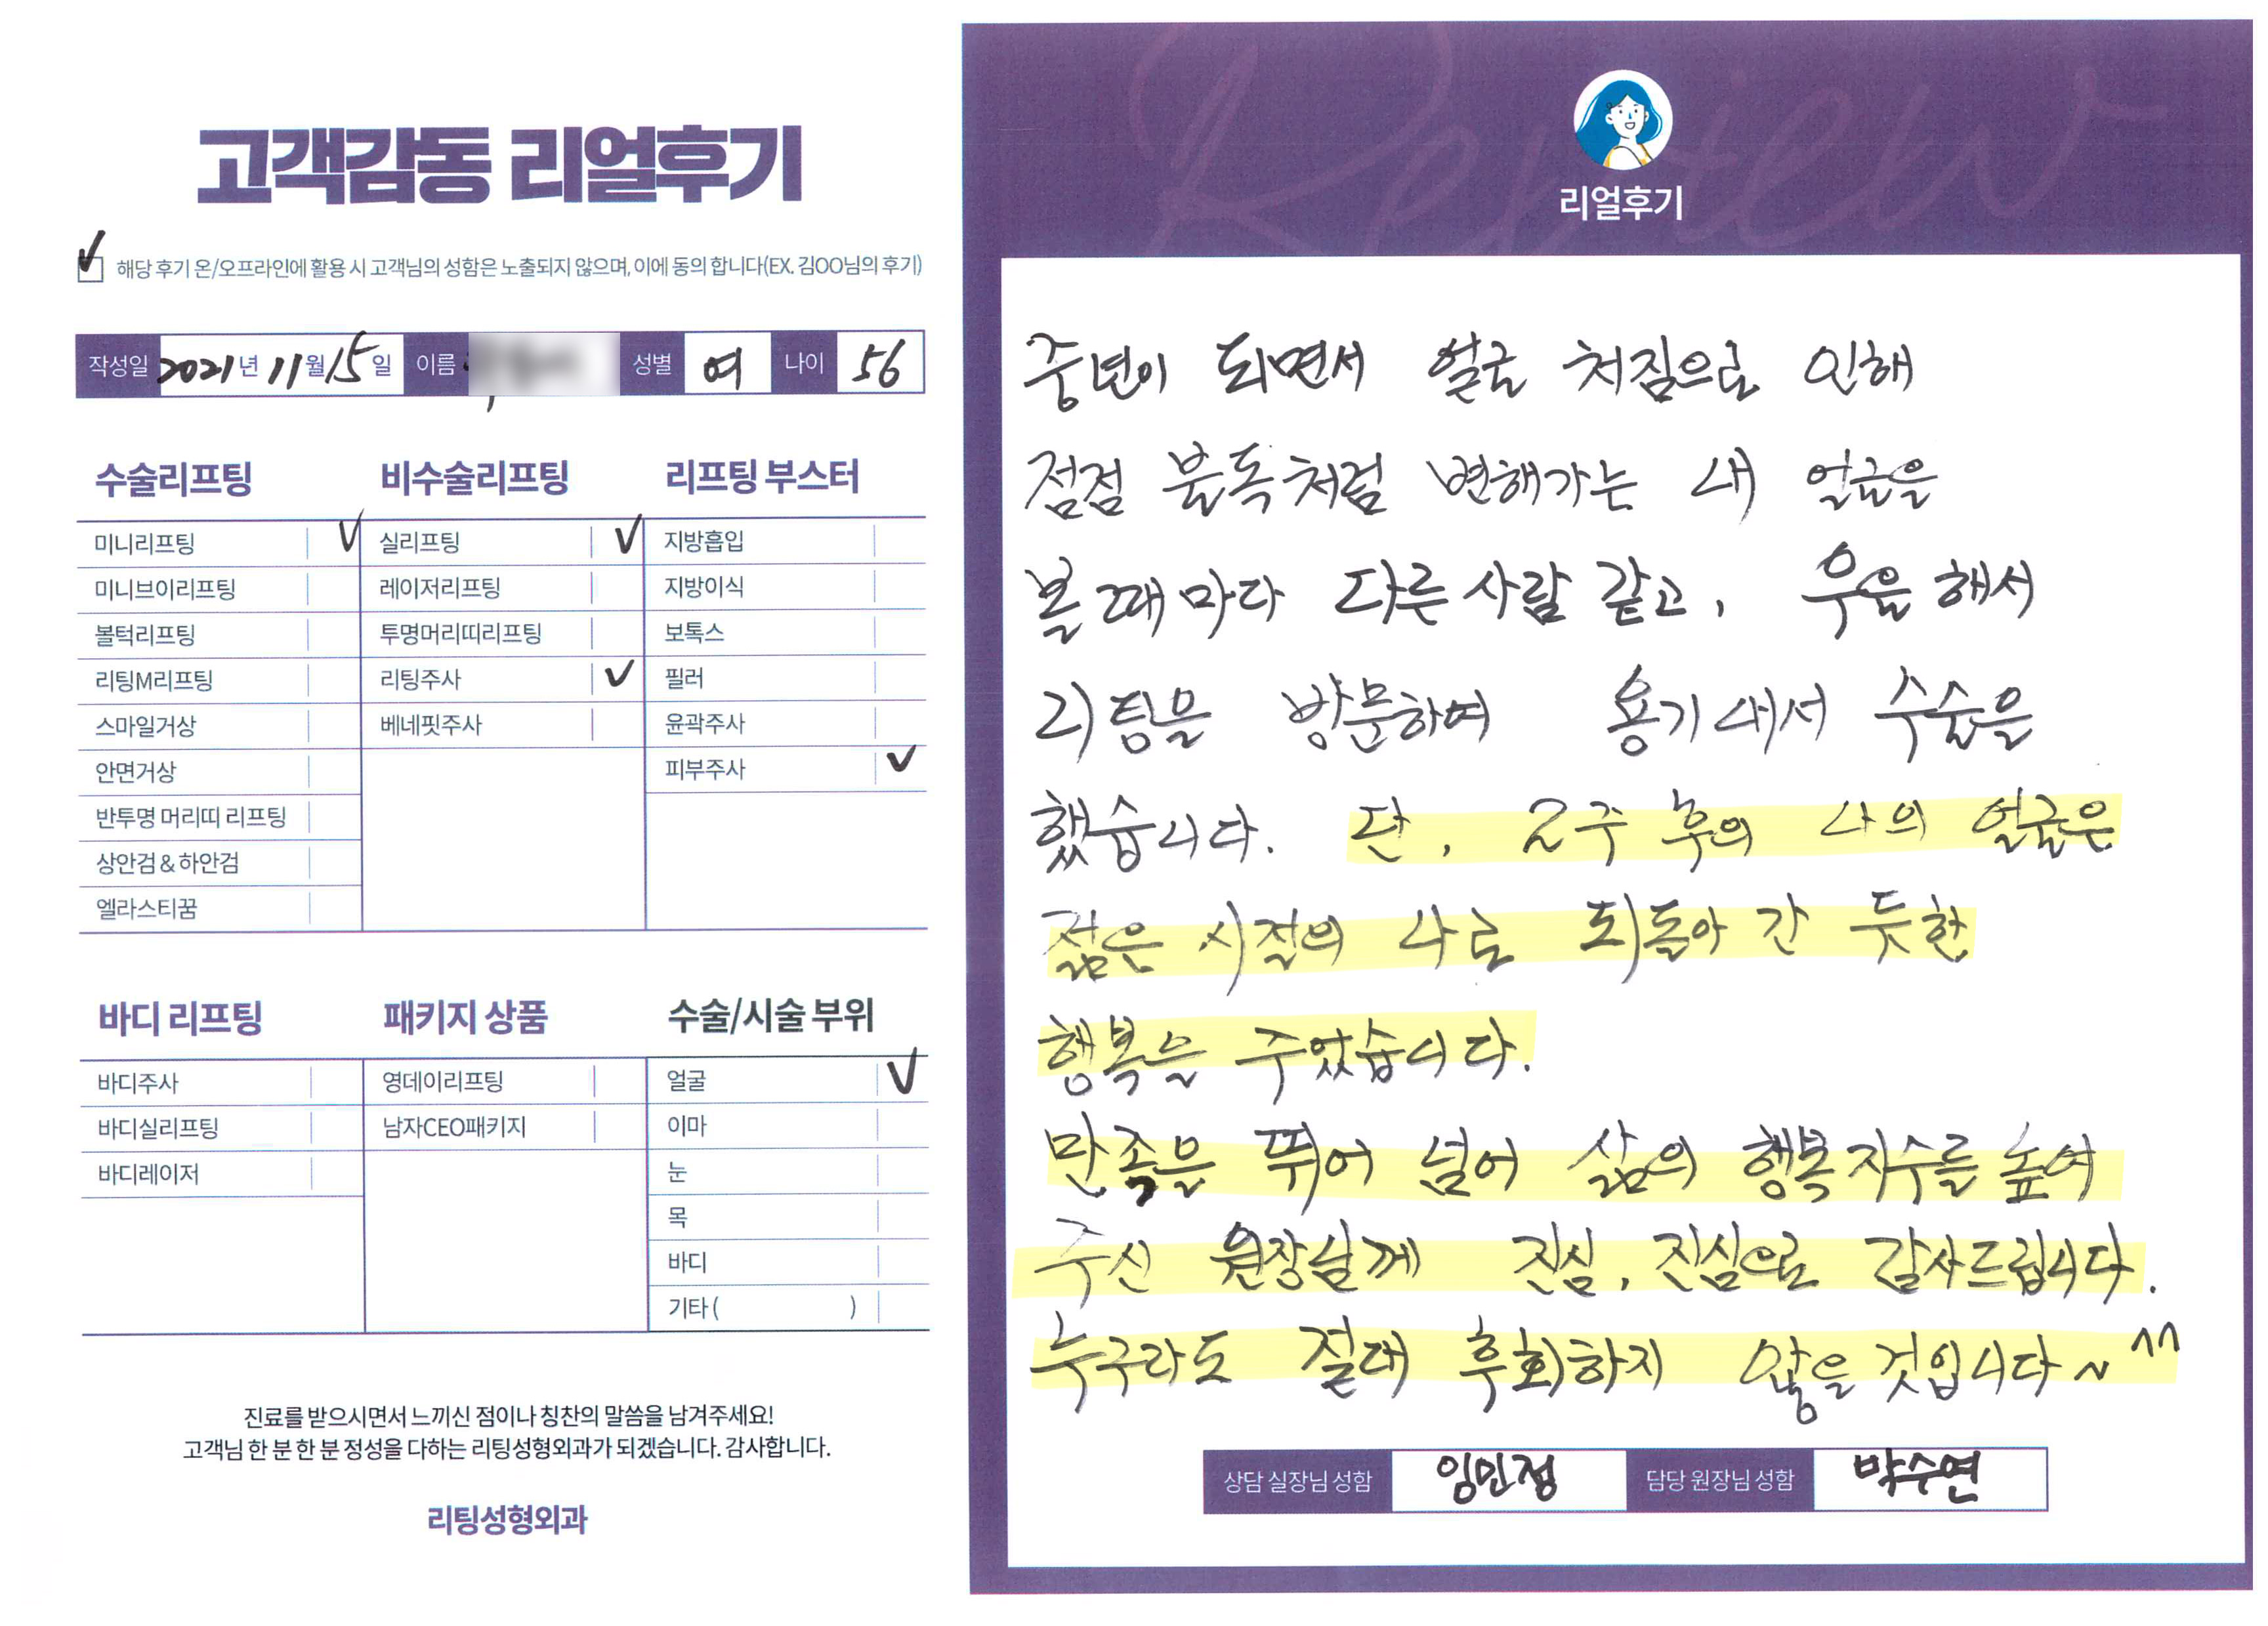 고객감동 리얼후기
해당 후기 온/오프라인에 활용 시 고객님의 성함은 노출되지 않으며, 이에 동의 합니다(EX. 김OO님의 후기)
작성일 2021년 11월 15일 이름 성별 여 나이 56
수술리프팅 비수술리프팅 리프팅 부스터
미니리프팅 ✓ 실리프팅 ✓ 지방흡입
미니브이리프팅 레이저리프팅 지방이식
볼턱리프팅 투명머리띠리프팅 보톡스
리팅M리프팅 리팅주사 ✓ 필러
스마일거상 베네핏주사 윤곽주사
안면거상 피부주사 ✓
반투명 머리띠 리프팅
상안검 & 하안검
엘라스티꿈
바디 리프팅 패키지 상품 수술/시술 부위
바디주사 영데이리프팅 얼굴 ✓
바디실리프팅 남자CEO패키지 이마
바디레이저 눈
목
바디
기타 ( )
진료를 받으시면서 느끼신 점이나 칭찬의 말씀을 남겨주세요!
고객님 한 분 한 분 정성을 다하는 리팅성형외과가 되겠습니다. 감사합니다.
리팅성형외과
Review
리얼후기
중년이 되면서 얼굴 처짐으로 인해
점점 불독처럼 변해가는 내 얼굴을
볼 때 마다 다른 사람 같고, 우울 해서
리팅을 방문하여 용기내서 수술을
했습니다. 단, 2주 후의 나의 얼굴은
젊은 시절의 나로 되돌아 간 듯한
행복을 주었습니다.
만족을 뛰어 넘어 삶의 행복지수를 높여
주신 원장님께 진심, 진심으로 감사드립니다.
누구라도 절대 후회하지 않을 것입니다~ ^^
상담 실장님 성함 임민정 담당 원장님 성함 박수연